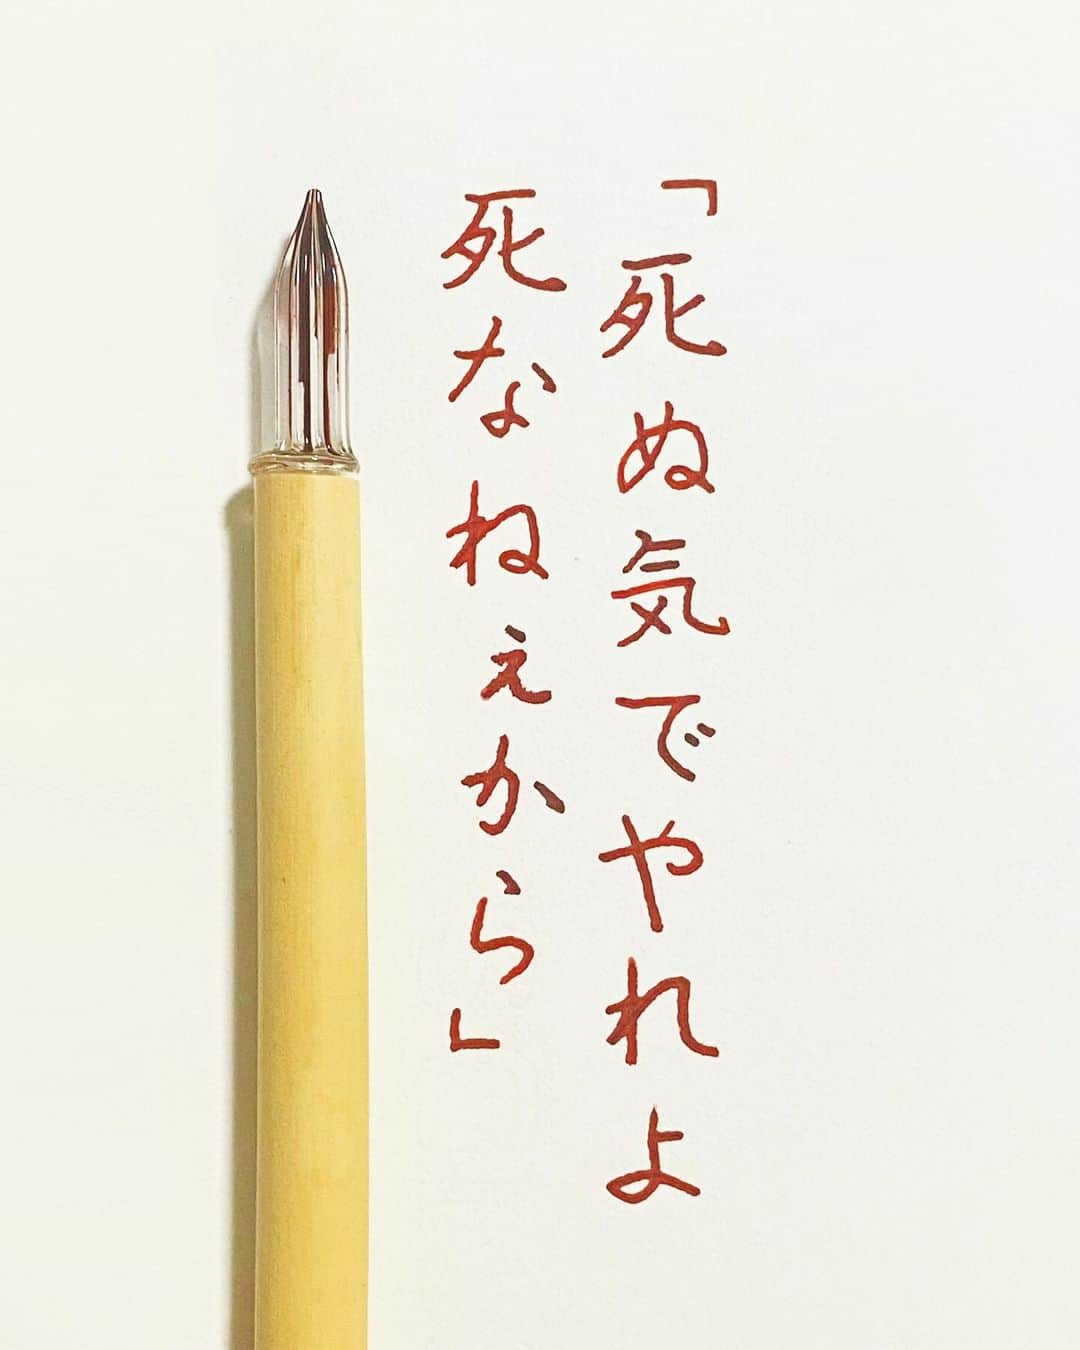 「死ぬ気でやれよ
死なねぇから」